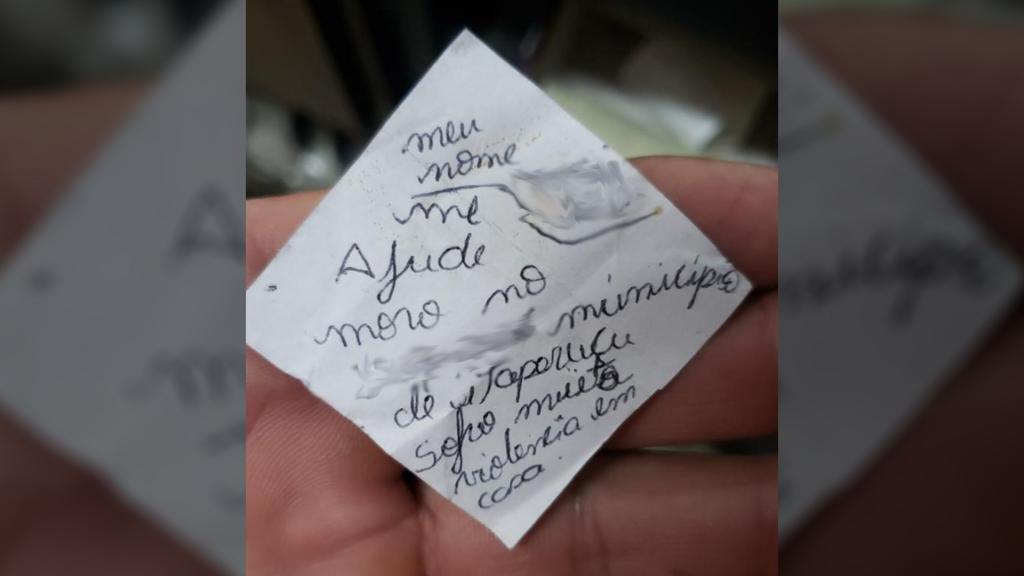 meu
nome
me
Ajude
moro no
município
de itaporucu
Sofro muita
violencia em
casa.